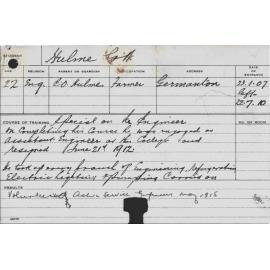 Hulme C.W.
STUDENT
AGE RELIGION PARENT OR GUARDIAN OCCUPATION ADDRESS DATE OF ENTRANCE
22 Eng. C.O. Hulme Farmer Germanton 23.1.07
left
22.7.10
COURSE OF TRAINING Special on the Engineer
On Completing his Course he was engaged as
Assistant Engineer at the College and
resigned June 21st 1912.
of every branch of Engineering, Refrigeration
Electric Lighting Carried on
RESULTS
Volunteered Active Service May 1915